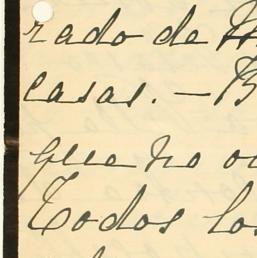 rado de
casas. —
que no
Todos los